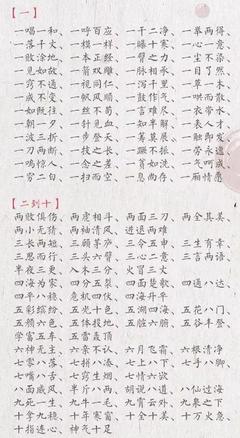 【一】
一唱一和、一呼百应、一干二净、一举两得、
一落千丈、一模一样、一曝十寒、一心一意、
一败涂地、一本正经、一臂之力、一尘不染、
一见如故、一箭双雕、一脉相承、一目了然、
一窍不通、一视同仁、一泻千里、一草一木、
一成不变、一帆风顺、一鼓作气、一哄而散、
一如既往、一丝不苟、一言难尽、一衣带水、
一朝一夕、一针见血、一知半解、一手一足、
一波三折、一步登天、一筹莫展、一触即发、
一刀两断、一技之长、一蹶不振、一劳永逸、
一鸣惊人、一念之差、一贫如洗、一气呵成、
一穷二白、一扫而空、一息尚存、一厢情愿
【二到十】
两败俱伤、两虎相斗、两面三刀、两全其美、
两小无猜、两袖清风、进退两难
三长两短、三顾茅庐、三令五申、三生有幸、
三思而行、三头六臂、三心二意、三言两语、
半夜三更、入木三分、火冒三丈
四海为家、四分五裂、四面楚歌、四通八达、
四平八稳、危机四伏、四海升平
五彩缤纷、五光十色、五湖四海、五花八门、
五颜六色、五体投地、五脏六腑、五谷丰登、
学富五车、五雷轰顶
六神无主、六亲不认、六月飞霜、六根清净
七零八落、七拼八凑、七上八下、七手八脚、
七嘴八舌、七窍生烟、七情六欲
八面威风、半斤八两、胡说八道、八仙过海
九死一生、九牛一毛、九霄云外、九泉之下
十拿九稳、十年寒窗、十全十美、十万火急、
十指连心、神气十足